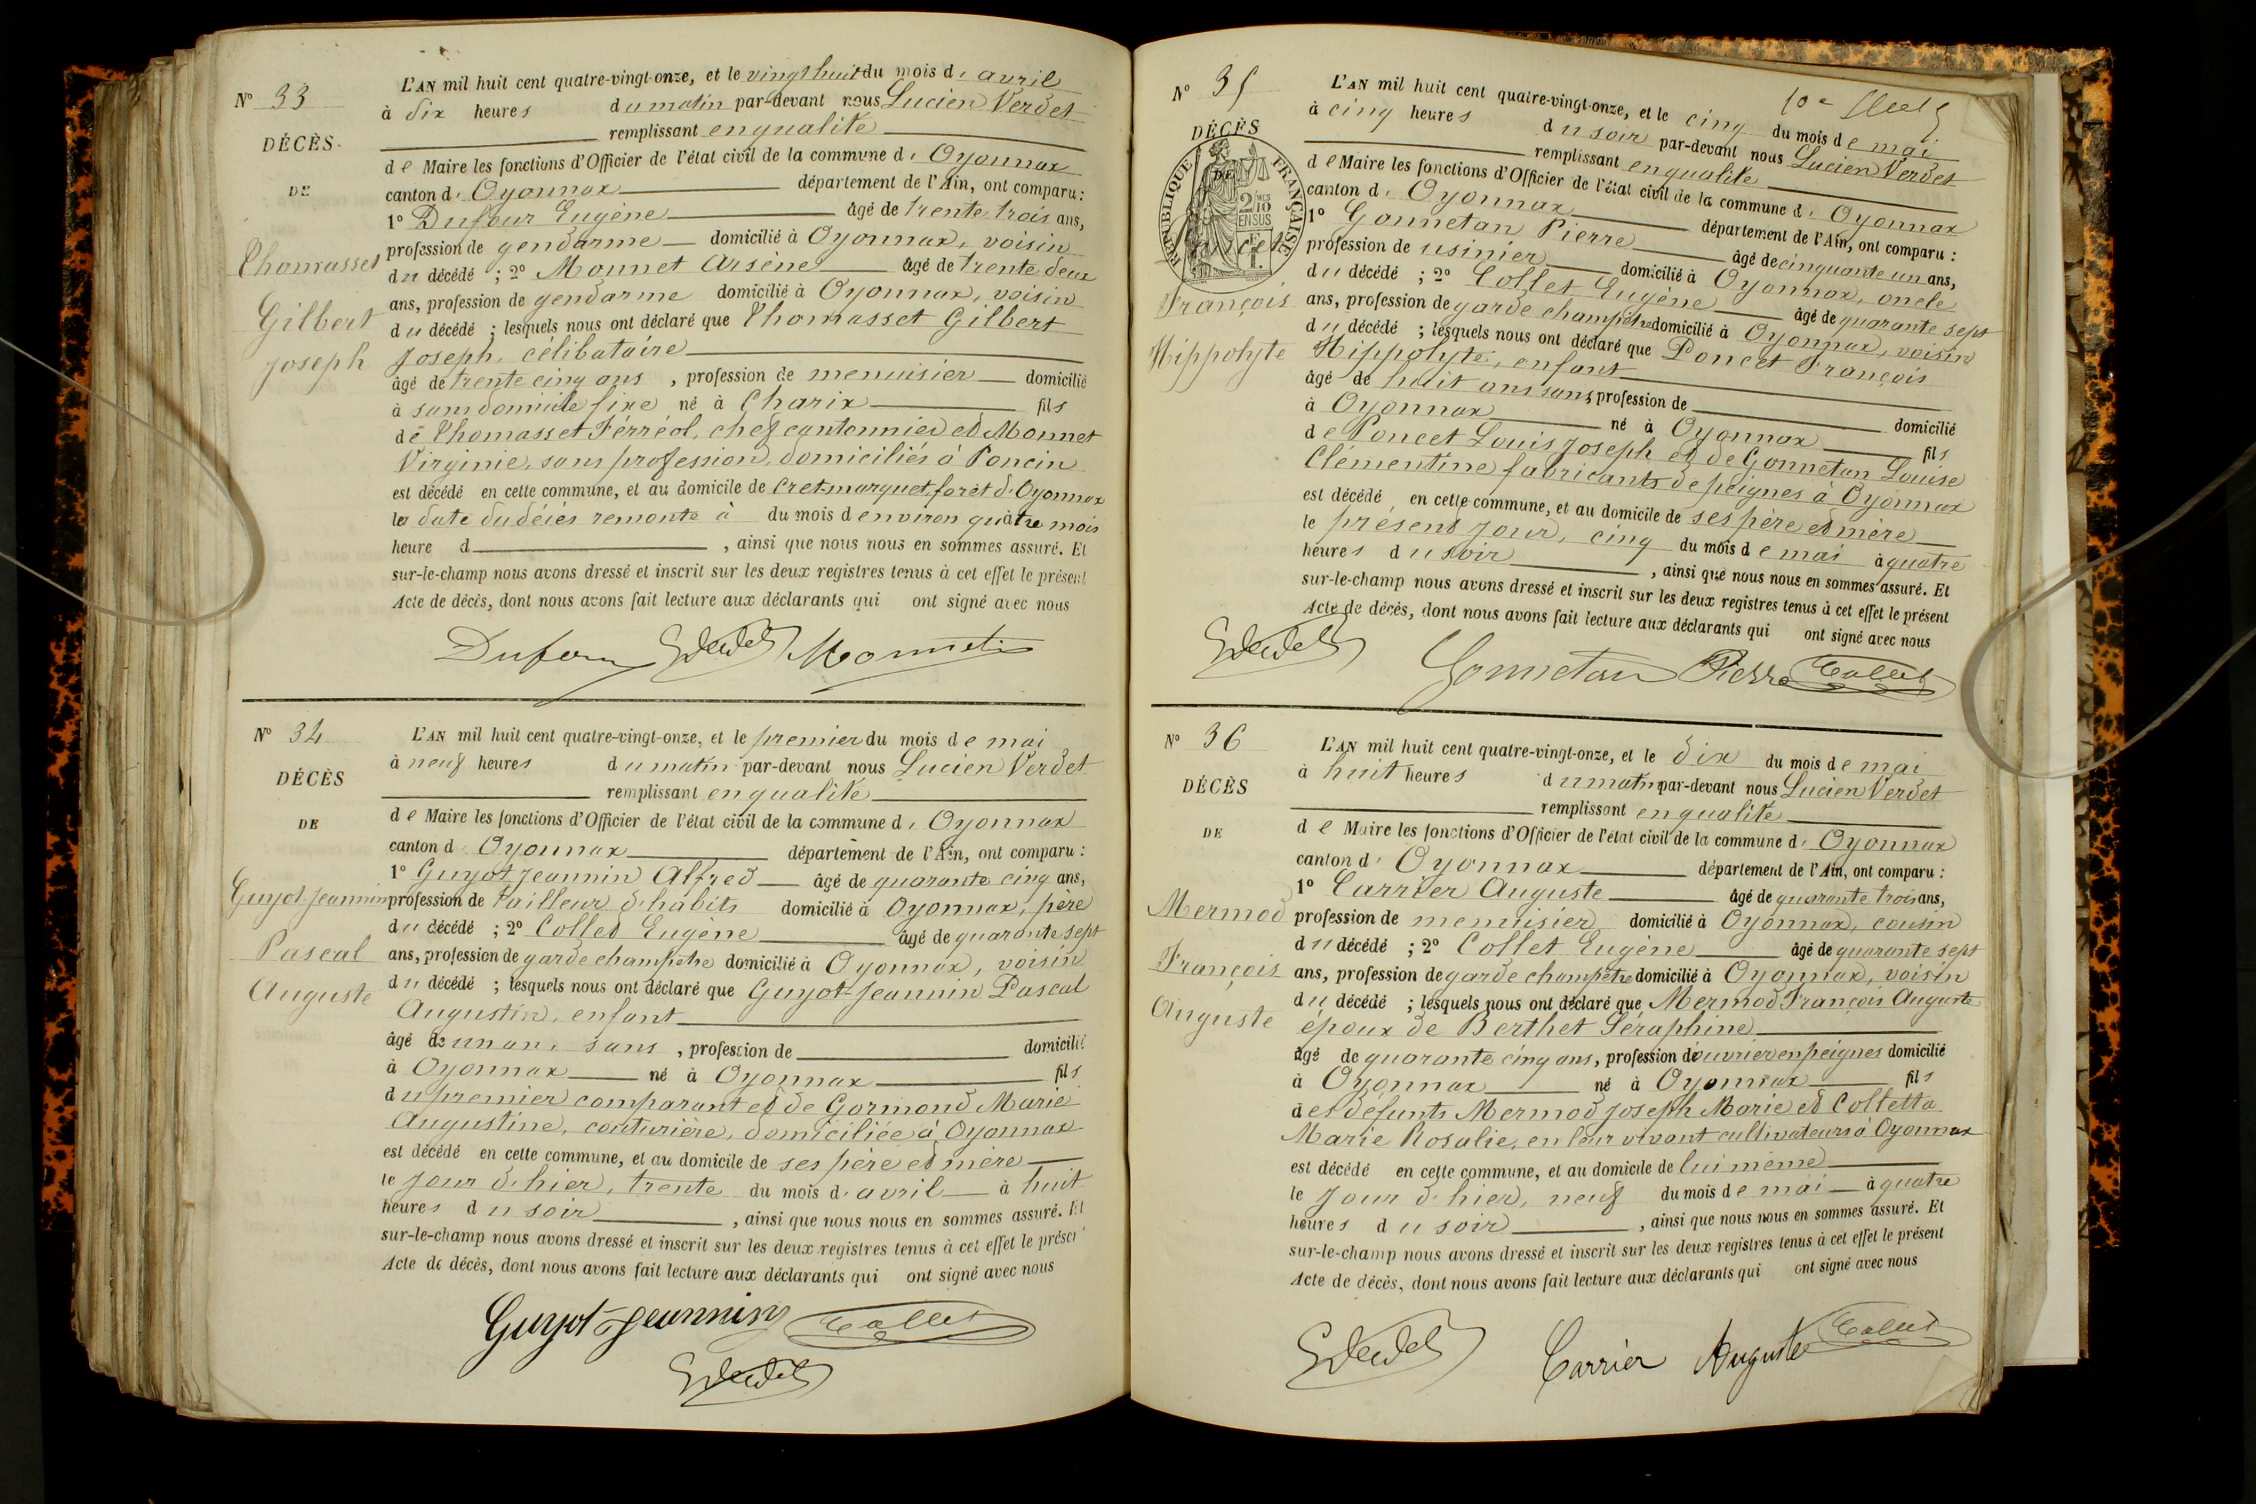 N° 33
DÉCÈS
DE
Thomasset
Gilbert
Joseph
L'AN mil huit cent quatre-vingt-onze, et le vingt huit du mois d'avril
à dix heures du matin par-devant nous Lucien Verdet
remplissant en qualité
de Maire les fonctions d'Officier de l'état civil de la commune d'Oyonnax
canton d'Oyonnax département de l'Ain, ont comparu :
1° Dufour Eugène âgé de trente trois ans,
profession de gendarme domicilié à Oyonnax, voisin
du décédé ; 2° Monnet Arsène âgé de trente deux
ans, profession de gendarme domicilié à Oyonnax, voisin
du décédé ; lesquels nous ont déclaré que Thomasset Gilbert
Joseph, célibataire
âgé de trente cinq ans, profession de menuisier domicilié
à sans domicile fixe né à Charix fils
de Thomasset Ferréol, chef cantonnier et Monnet
Virginie, sans profession, domiciliés à Poncin
est décédé en cette commune, et au domicile de Cret-marquet, forêt d'Oyonnax
le date du décés remonte à du mois d environ quatre mois
heure d , ainsi que nous nous en sommes assuré. Et
sur-le-champ nous avons dressé et inscrit sur les deux registres tenus à cet effet le présent
Acte de décès, dont nous avons fait lecture aux déclarants qui ont signé avec nous
Dufour Verdet Monnet
N° 34
DÉCÈS
DE
Guyot-Jeannin
Pascal
Auguste
L'AN mil huit cent quatre-vingt-onze, et le premier du mois de mai
à neuf heures du matin par-devant nous Lucien Verdet
remplissant en qualité
de Maire les fonctions d'Officier de l'état civil de la commune d'Oyonnax
canton d'Oyonnax département de l'Ain, ont comparu :
1° Guyot-Jeannin Alfred âgé de quarante cinq ans,
profession de tailleur d'habits domicilié à Oyonnax, père
du décédé ; 2° Collet Eugène âgé de quarante sept
ans, profession de garde champêtre domicilié à Oyonnax, voisin
du décédé ; lesquels nous ont déclaré que Guyot-Jeannin Pascal
Augustin, enfant
âgé de un an, sans, profession de domicilié
à Oyonnax né à Oyonnax fils
du premier comparant et de Gormond Marie
Augustine, couturière, domiciliée à Oyonnax
est décédé en cette commune, et au domicile de ses père et mère
le jour d'hier, trente du mois d'avril à huit
heures du soir , ainsi que nous nous en sommes assuré. Et
sur-le-champ nous avons dressé et inscrit sur les deux registres tenus à cet effet le présent
Acte de décès, dont nous avons fait lecture aux déclarants qui ont signé avec nous
Guyot-Jeannin Collet
Verdet
N° 35
DÉCÈS
DE
RÉPUBLIQUE FRANÇAISE
2/10 EN SUS
Poncet
François
Hippolyte
L'AN mil huit cent quatre-vingt-onze, et le cinq du mois de mai
à cinq heures du soir par-devant nous Lucien Verdet
remplissant en qualité
de Maire les fonctions d'Officier de l'état civil de la commune d'Oyonnax
canton d'Oyonnax département de l'Ain, ont comparu :
1° Gonnetan Pierre âgé de cinquante un ans,
profession de usinier domicilié à Oyonnax, oncle
du décédé ; 2° Collet Eugène âgé de quarante sept
ans, profession de garde champêtre domicilié à Oyonnax, voisin
du décédé ; lesquels nous ont déclaré que Poncet François
Hippolyte, enfant
âgé de huit ans sans, profession de domicilié
à Oyonnax né à Oyonnax fils
de Poncet Louis Joseph et de Gonnetan Louise
Clémentine fabricants de peignes à Oyonnax
est décédé en cette commune, et au domicile de ses père et mère
le présent jour, cinq du mois de mai à quatre
heures du soir , ainsi que nous nous en sommes assuré. Et
sur-le-champ nous avons dressé et inscrit sur les deux registres tenus à cet effet le présent
Acte de décès, dont nous avons fait lecture aux déclarants qui ont signé avec nous
Verdet Gonnetan Pierre Collet
N° 36
DÉCÈS
DE
Mermod
François
Auguste
L'AN mil huit cent quatre-vingt-onze, et le dix du mois de mai
à huit heures du matin par-devant nous Lucien Verdet
remplissant en qualité
de Maire les fonctions d'Officier de l'état civil de la commune d'Oyonnax
canton d'Oyonnax département de l'Ain, ont comparu :
1° Carrier Auguste âgé de quarante trois ans,
profession de menuisier domicilié à Oyonnax, cousin
du décédé ; 2° Collet Eugène âgé de quarante sept
ans, profession de garde champêtre domicilié à Oyonnax, voisin
du décédé ; lesquels nous ont déclaré que Mermod François Auguste
époux de Berthet Séraphine
âgé de quarante cinq ans, profession d'ouvrier en peignes domicilié
à Oyonnax né à Oyonnax fils
des défunts Mermod Joseph Marie et Colletta
Marie Rosalie, en leur vivant cultivateurs à Oyonnax
est décédé en cette commune, et au domicile de lui même
le jour d'hier, neuf du mois de mai à quatre
heures du soir , ainsi que nous nous en sommes assuré. Et
sur-le-champ nous avons dressé et inscrit sur les deux registres tenus à cet effet le présent
Acte de décès, dont nous avons fait lecture aux déclarants qui ont signé avec nous
Verdet Carrier Auguste Collet